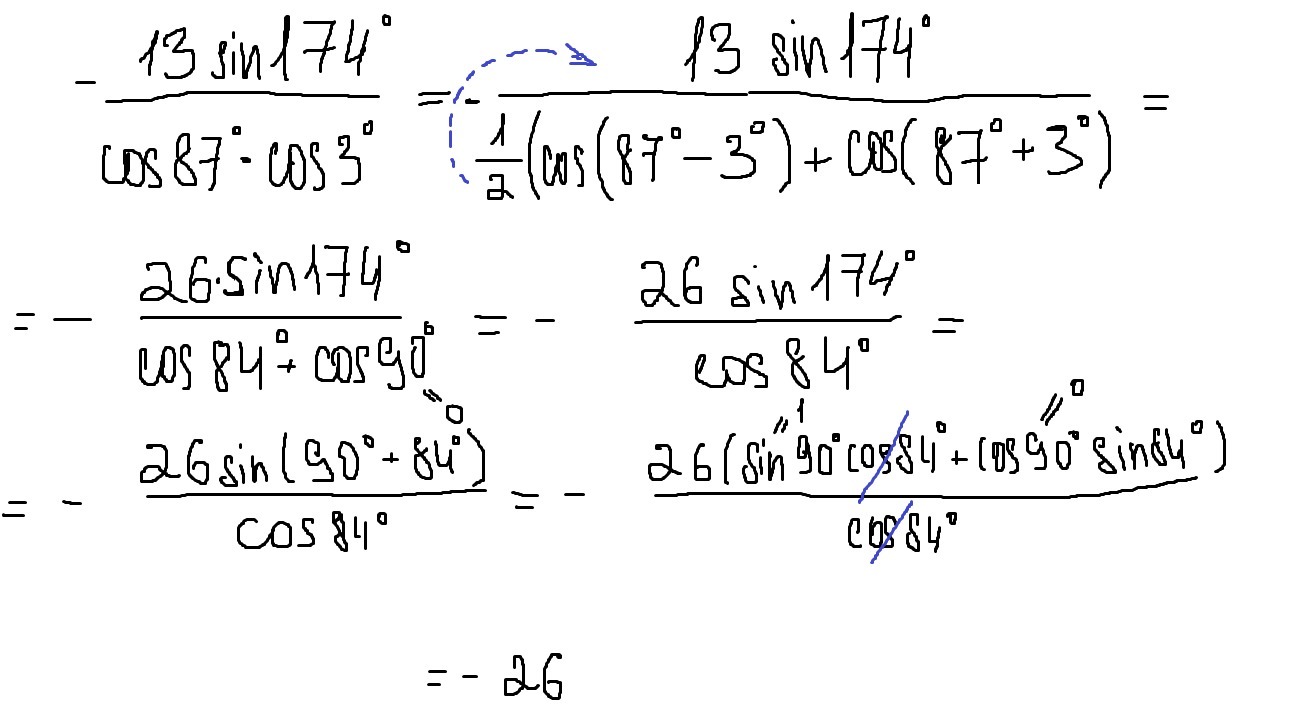 - 13 sin174° / cos87° · cos3° = - 13 sin174° / 1/2 (cos(87° - 3°) + cos(87° + 3°) =
= - 26·sin174° / cos84° + cos90° = - 26 sin174° / cos84° =
= 0
= - 26 sin(90° + 84°) / cos84° = - 26 (sin90° cos84° + cos90° sin84°) / cos84°
= 1
= 0
= - 26